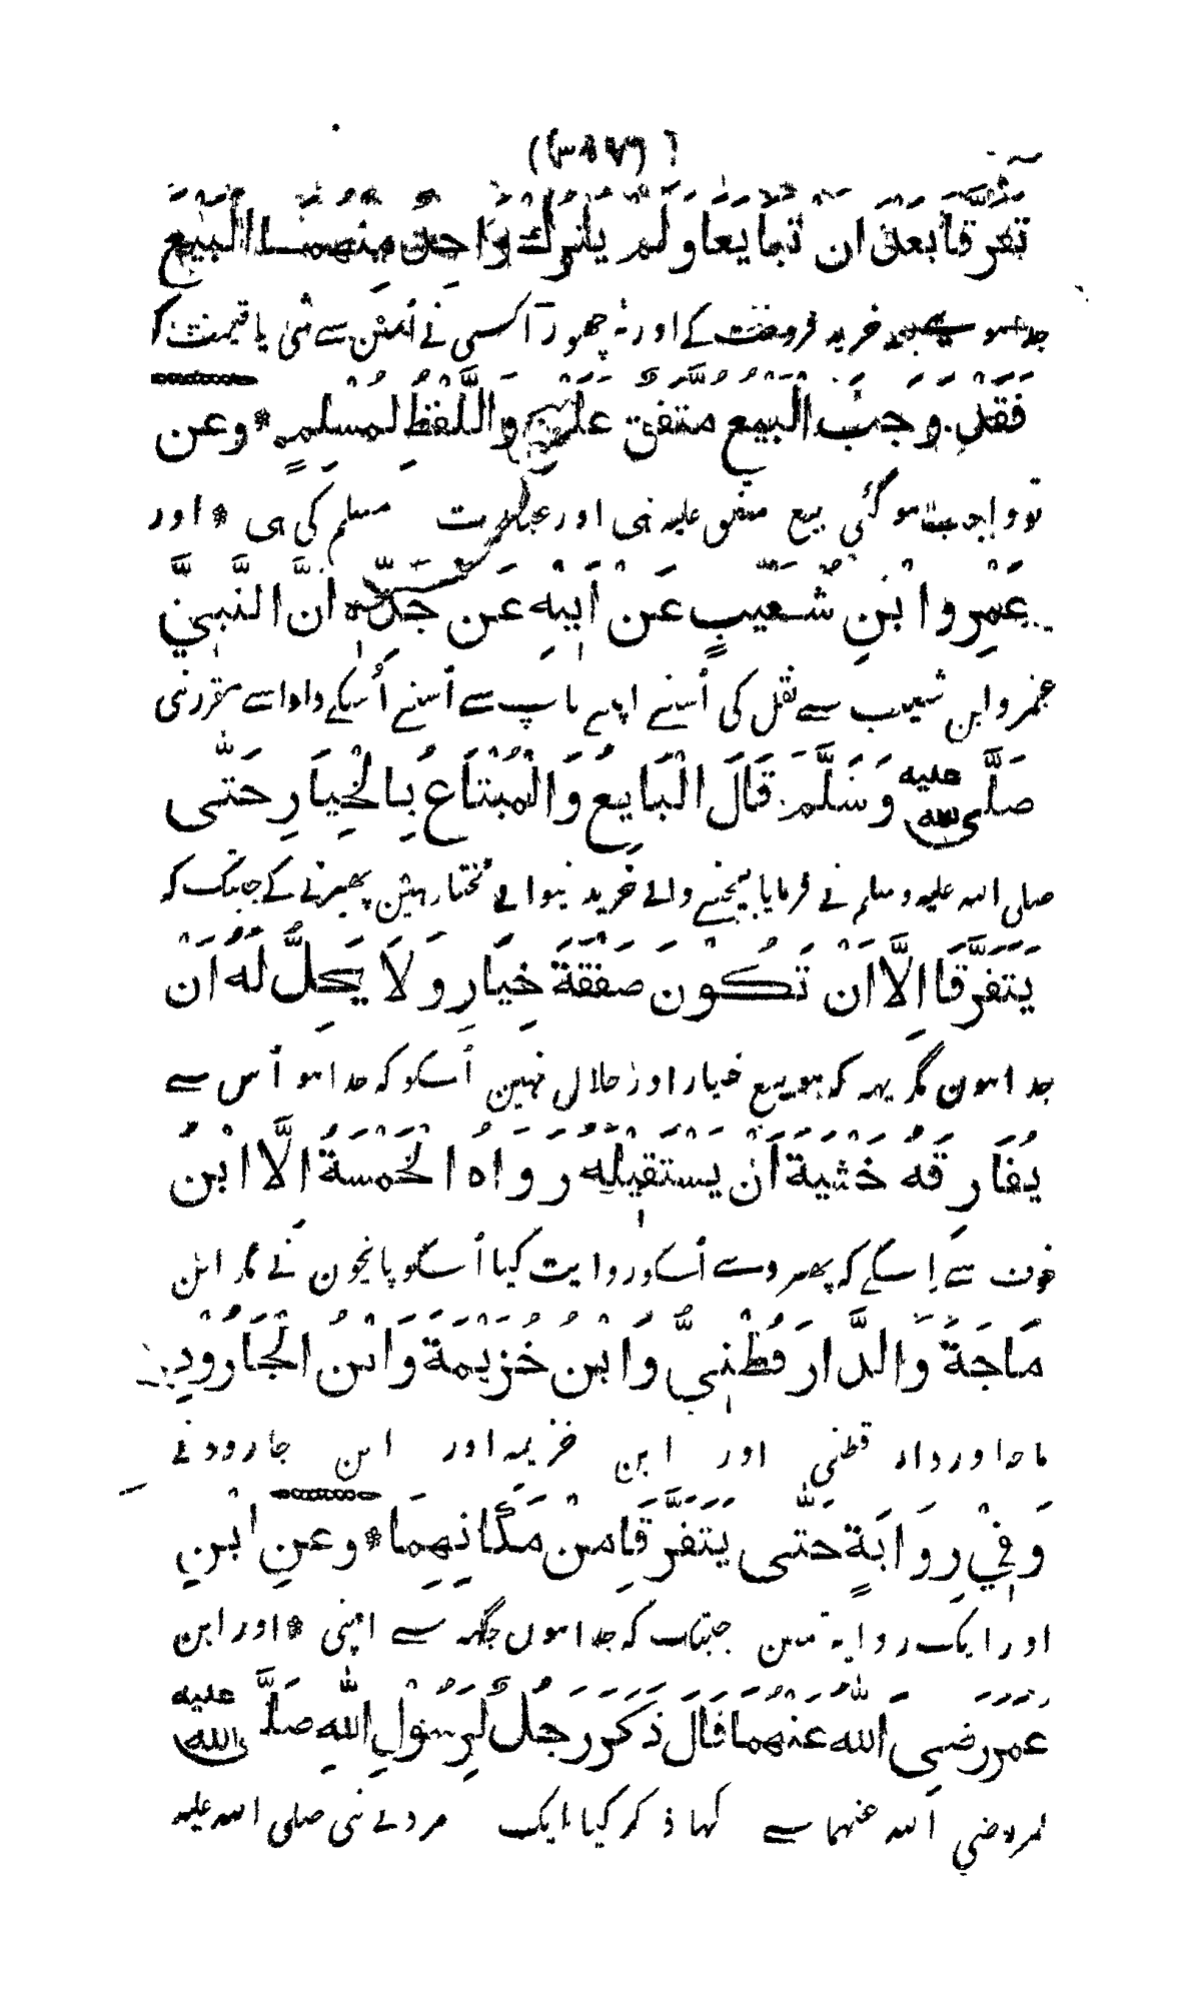 تَفَرَّقَا بَعْدَ اَنْ تَبَايَعَا وَلَمْ يَتْرُكْ وَاحِدٌ مِنْهُمَا الْبَيْعَ
جدا ہو خرید فروخت کے اور نہ چھورآ کسی نے اُنمین سے شئ یا قیمت کو
فَقَدْ وَجَبَ الْبَيْعُ مُتَّفَقٌ عَلَيْهِ وَاللَّفْظُ لِمُسْلِمٍ * وعن
تو واجب ہو گئی بیع متفق علیہ ہی اور عبارت مسلم کی ہی * اور
عَمْرِو ابْنِ شُعَيْبٍ عَنْ اَبِيْهِ عَنْ جَدِّهِ اَنَّ النَّبِيَّ
عمرو ابن شعیب سے نقل کی اُسنے اپنے باپ سے اُسنے اُسکے دادا سے مقرر نبی
صَلَّى اللّٰهُ عليه وَسَلَّمَ قَالَ الْبَايِعُ وَالْمُبْتَاعُ بِالْخِيَارِ حَتّٰى
صلی اللہ علیہ وسلم نے فرمایا بیچنے والے خریدنیوالے مختار ہین پھیرنے کے جبتک کہ
يَتَفَرَّقَا اِلَّا اَنْ تَكُوْنَ صَفْقَةَ خِيَارٍ وَلَا يَحِلُّ لَهُ اَنْ
جدا ہون مگر یہہ کہ ہو بیع خیار اور حلال نہین اُسکو کہ جدا ہو اُس سے
يُفَارِقَهُ خَشْيَةَ اَنْ يَسْتَقِيْلَهُ رَوَاهُ الْخَمْسَةُ اِلَّا ابْنُ
خوف سے اِسکے کہ پھیر دے اُسکو روایت کیا اُسکو پانچون نے مگر ابن
مَاجَةَ وَالدَّارَقُطْنِيُّ وَابْنُ خُزَيْمَةَ وَابْنُ الْجَارُوْدِ
ماجہ اور دار قطنی اور ابن خزیمہ اور ابن جارود نے
وَفِيْ رِوَايَةٍ حَتّٰى يَتَفَرَّقَا مِنْ مَكَانِهِمَا * وعن ابْنِ
اور ایک روایۃ مین جبتک کہ جدا ہوں جگہہ سے اپنی * اور ابن
عُمَرَ رَضِيَ اللّٰهُ عَنْهُمَا قَالَ ذَكَرَ رَجُلٌ لِرَسُوْلِ اللّٰهِ صَلَّى اللّٰهُ عليه
رضی اللہ عنہما سے کہا ذکر کیا ایک مرد نے نبی صلی اللہ علیہ